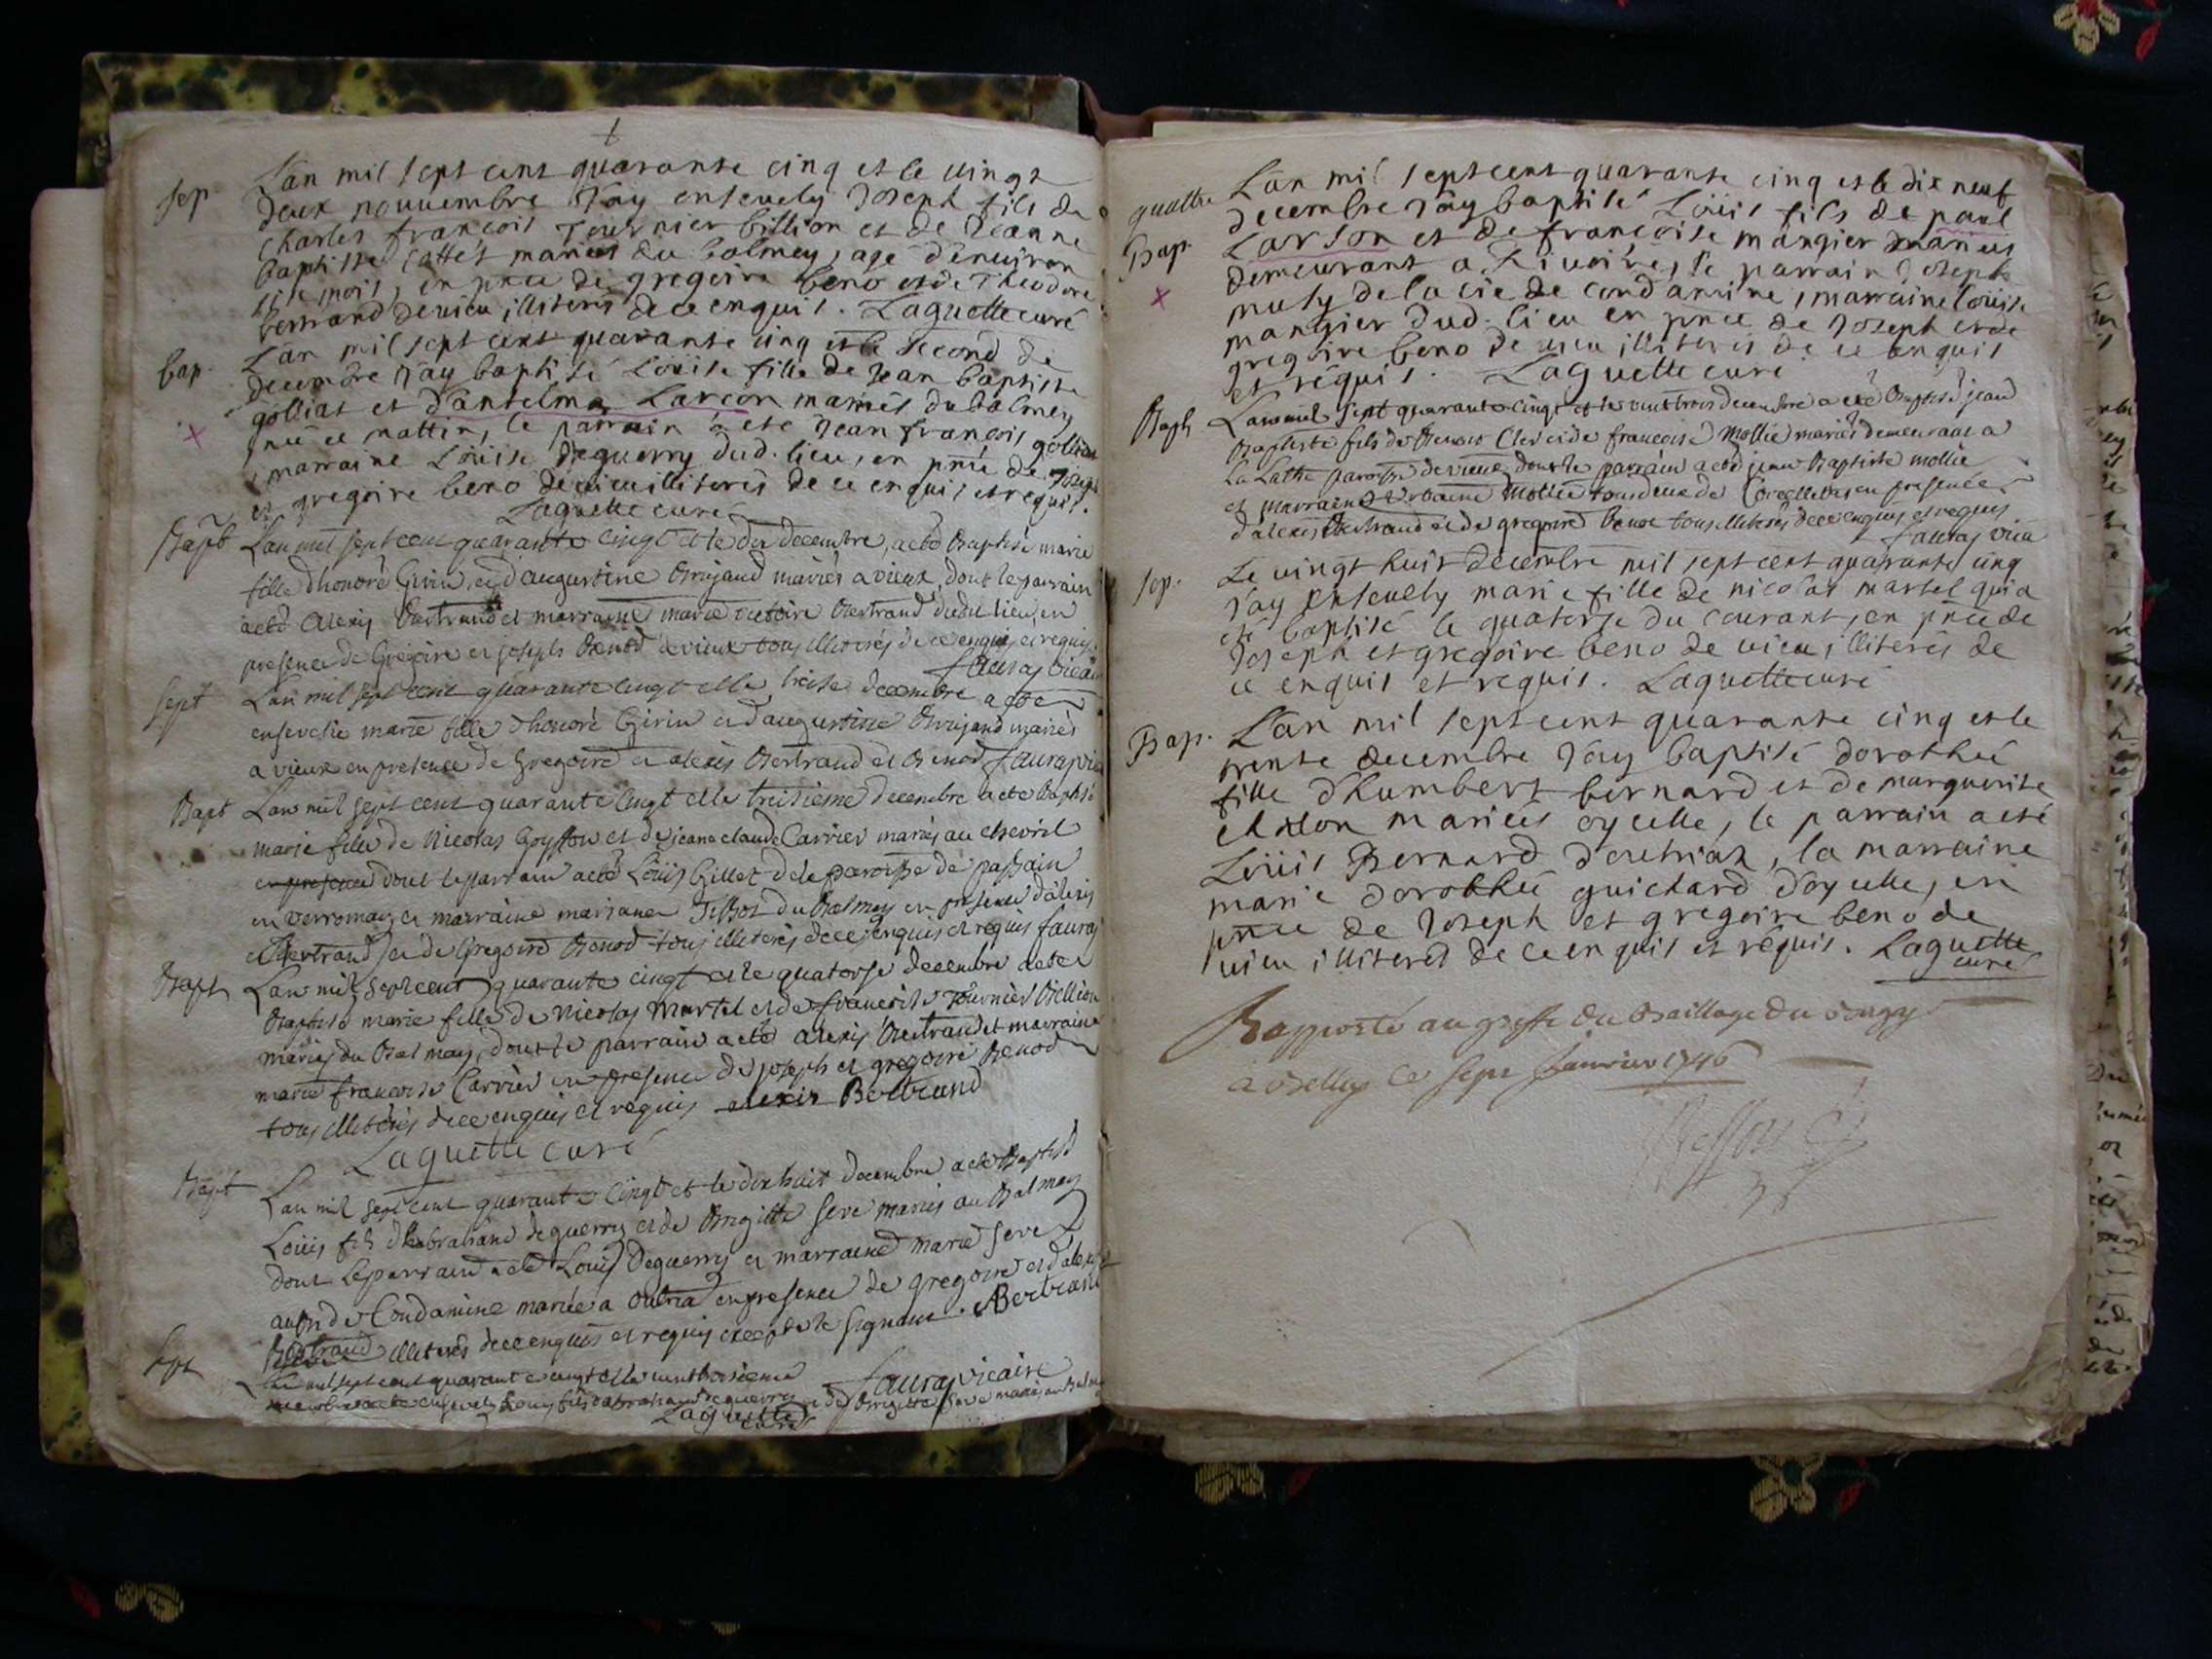 Sep. L'an mil sept cent quarante cinq et le vingt
deux nouvembre J'ay ensevely Joseph fils de
Charles francois Tournier billion et de Jeanne
baptiste mariés du balmey, agé d'environ
mois, en pnce de gregoire beno et de Theodore
bertrand de vieu illiterés de ce enquis. Laguette curé
bap. L'an mil sept cent quarante cinq et le second de
decembre J'ay baptisé Louise fille de Jean baptiste
golliat et d'antelma Larcon mariés du balmey
née ce mattin, le parrain a ete Jean francois golliat
marraine Louise Deguerry dud. lieu, en pnce de Joseph
et gregoire beno de vieu illiterés de ce enquis et requis.
Laguette curé
Bapt L'an mil sept cent quarante cinqt et le dix decembre, a eté Baptisé marie
fille d'honoré Girin, et d'augustine Brujand mariés a vieux, dont le parrain
a eté Alexis Bertrand et marraine marie victoire Bertrand dudit lieu, en
presence de Gregoire et joseph Benod de vieux tous illiterés de ce enquis et requis
fauraz vicaire
Sept L'an mil sept cent quarante cinqt et le treise decembre a eté
ensevelie marie fille d'honoré Girin et d'augustine Brujand mariés
a vieux en presence de Gregoire et alexis Bertrand et Benod fauraz vic
Bapt L'an mil sept cent quarante cinqt et le treisieme decembre a eté baptisé
marie fille de Nicolas Goyffon et de jeane claude Carrier mariés au chevril
en presence dont le parrain a eté Louis Gillet de la paroisse de passain
en verromay et marraine mariane du Balmay en presence d'alexis
Bertrand et de Gregoire Benod tous illiterés de ce enquis et requis fauraz
Bapt L'an mil sept cent quarante cinqt et le quatorse decembre a eté
Baptisé marie fille de Nicolas Martel et de francoise Tournier Billion
mariés du Balmay, dont le parrain a eté alexis Bertrand et marraine
marie francoise Carrier en presence de joseph et gregoire Benod
tous illiterés de ce enquis et requis alexis Bertrand
Laguette curé
Bapt L'an mil sept cent quarante cinqt et le dix huit decembre a eté Baptisé
Louis fils d'habraham deguerry et de Brigitte Sere mariés au Balmay
dont le parrain a eté Louis Deguerry et marraine marie Sere
de Condamine mariée a en presence de gregoire et d'alexis
Bertrand illiterés de ce enquis et requis excepté le signant. ABertrand
fauraz vicaire
Sept L'an mil sept cent quarante cinqt et le vint troisieme
decembre a eté ensevely Louis fils d'abraham deguerry et de Brigitte Sere mariés au Balmay
Laguette curé
quattre L'an mil sept cent quarante cinq et le dix neuf
decembre J'ay baptisé Loüis fils de paul
Bap. Larson et de francoise mangier mariés
demeurant a Rivoire, le parrain Joseph
muty de la cie de condamine, marraine loüise
mangier dud. lieu en pnce de Joseph et de
gregoire beno de vieu illiterés de ce enquis
et requis. Laguette curé
Baph L'an mil sept quarante cinqt et le vint trois decembre a eté Baptisé jean
Baptiste fils de et de francoise Mollie mariés demeurant a
la Latte paroisse de vieux dont le parrain a eté jean Baptiste mollie
et marraine Mollie tous deux de en presence
d'alexis Bertrand et de gregoire Benoe tous illiterés de ce enquis et requis
fauraz vica
Sep. Le vingt huit decembre mil sept cent quarante cinq
J'ay ensevely marie fille de nicolas martel qui a
eté baptisé le quatorse du courant, en pnce de
Joseph et gregoire beno de vieu, illiterés de
ce enquis et requis. Laguette curé
Bap. L'an mil sept cent quarante cinq et le
trente decembre J'ay baptisé dorothée
fille d'humbert bernard et de marguerite
mariés oyselle, le parrain a eté
Loüis Bernard d'outriaz, la marraine
marie dorothée guichard d'oyselle, en
pnce de Joseph et gregoire beno de
vieu illiterés de ce enquis et requis. Laguette
curé
Rapporté au greffe du Baillage du Bugey
a Belley le sept Janvier 1746